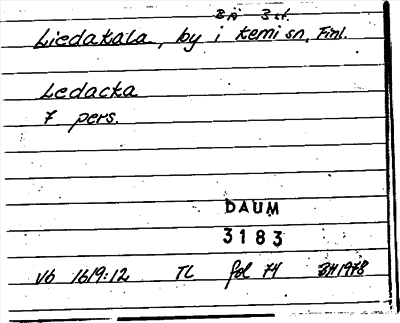 BÄ 3 st.
Liedakala, by i Kemi sn, Finl.
Ledacka
7 pers.
DAUM
3183
Vb 1619:12 TL fol 74 BH 1978